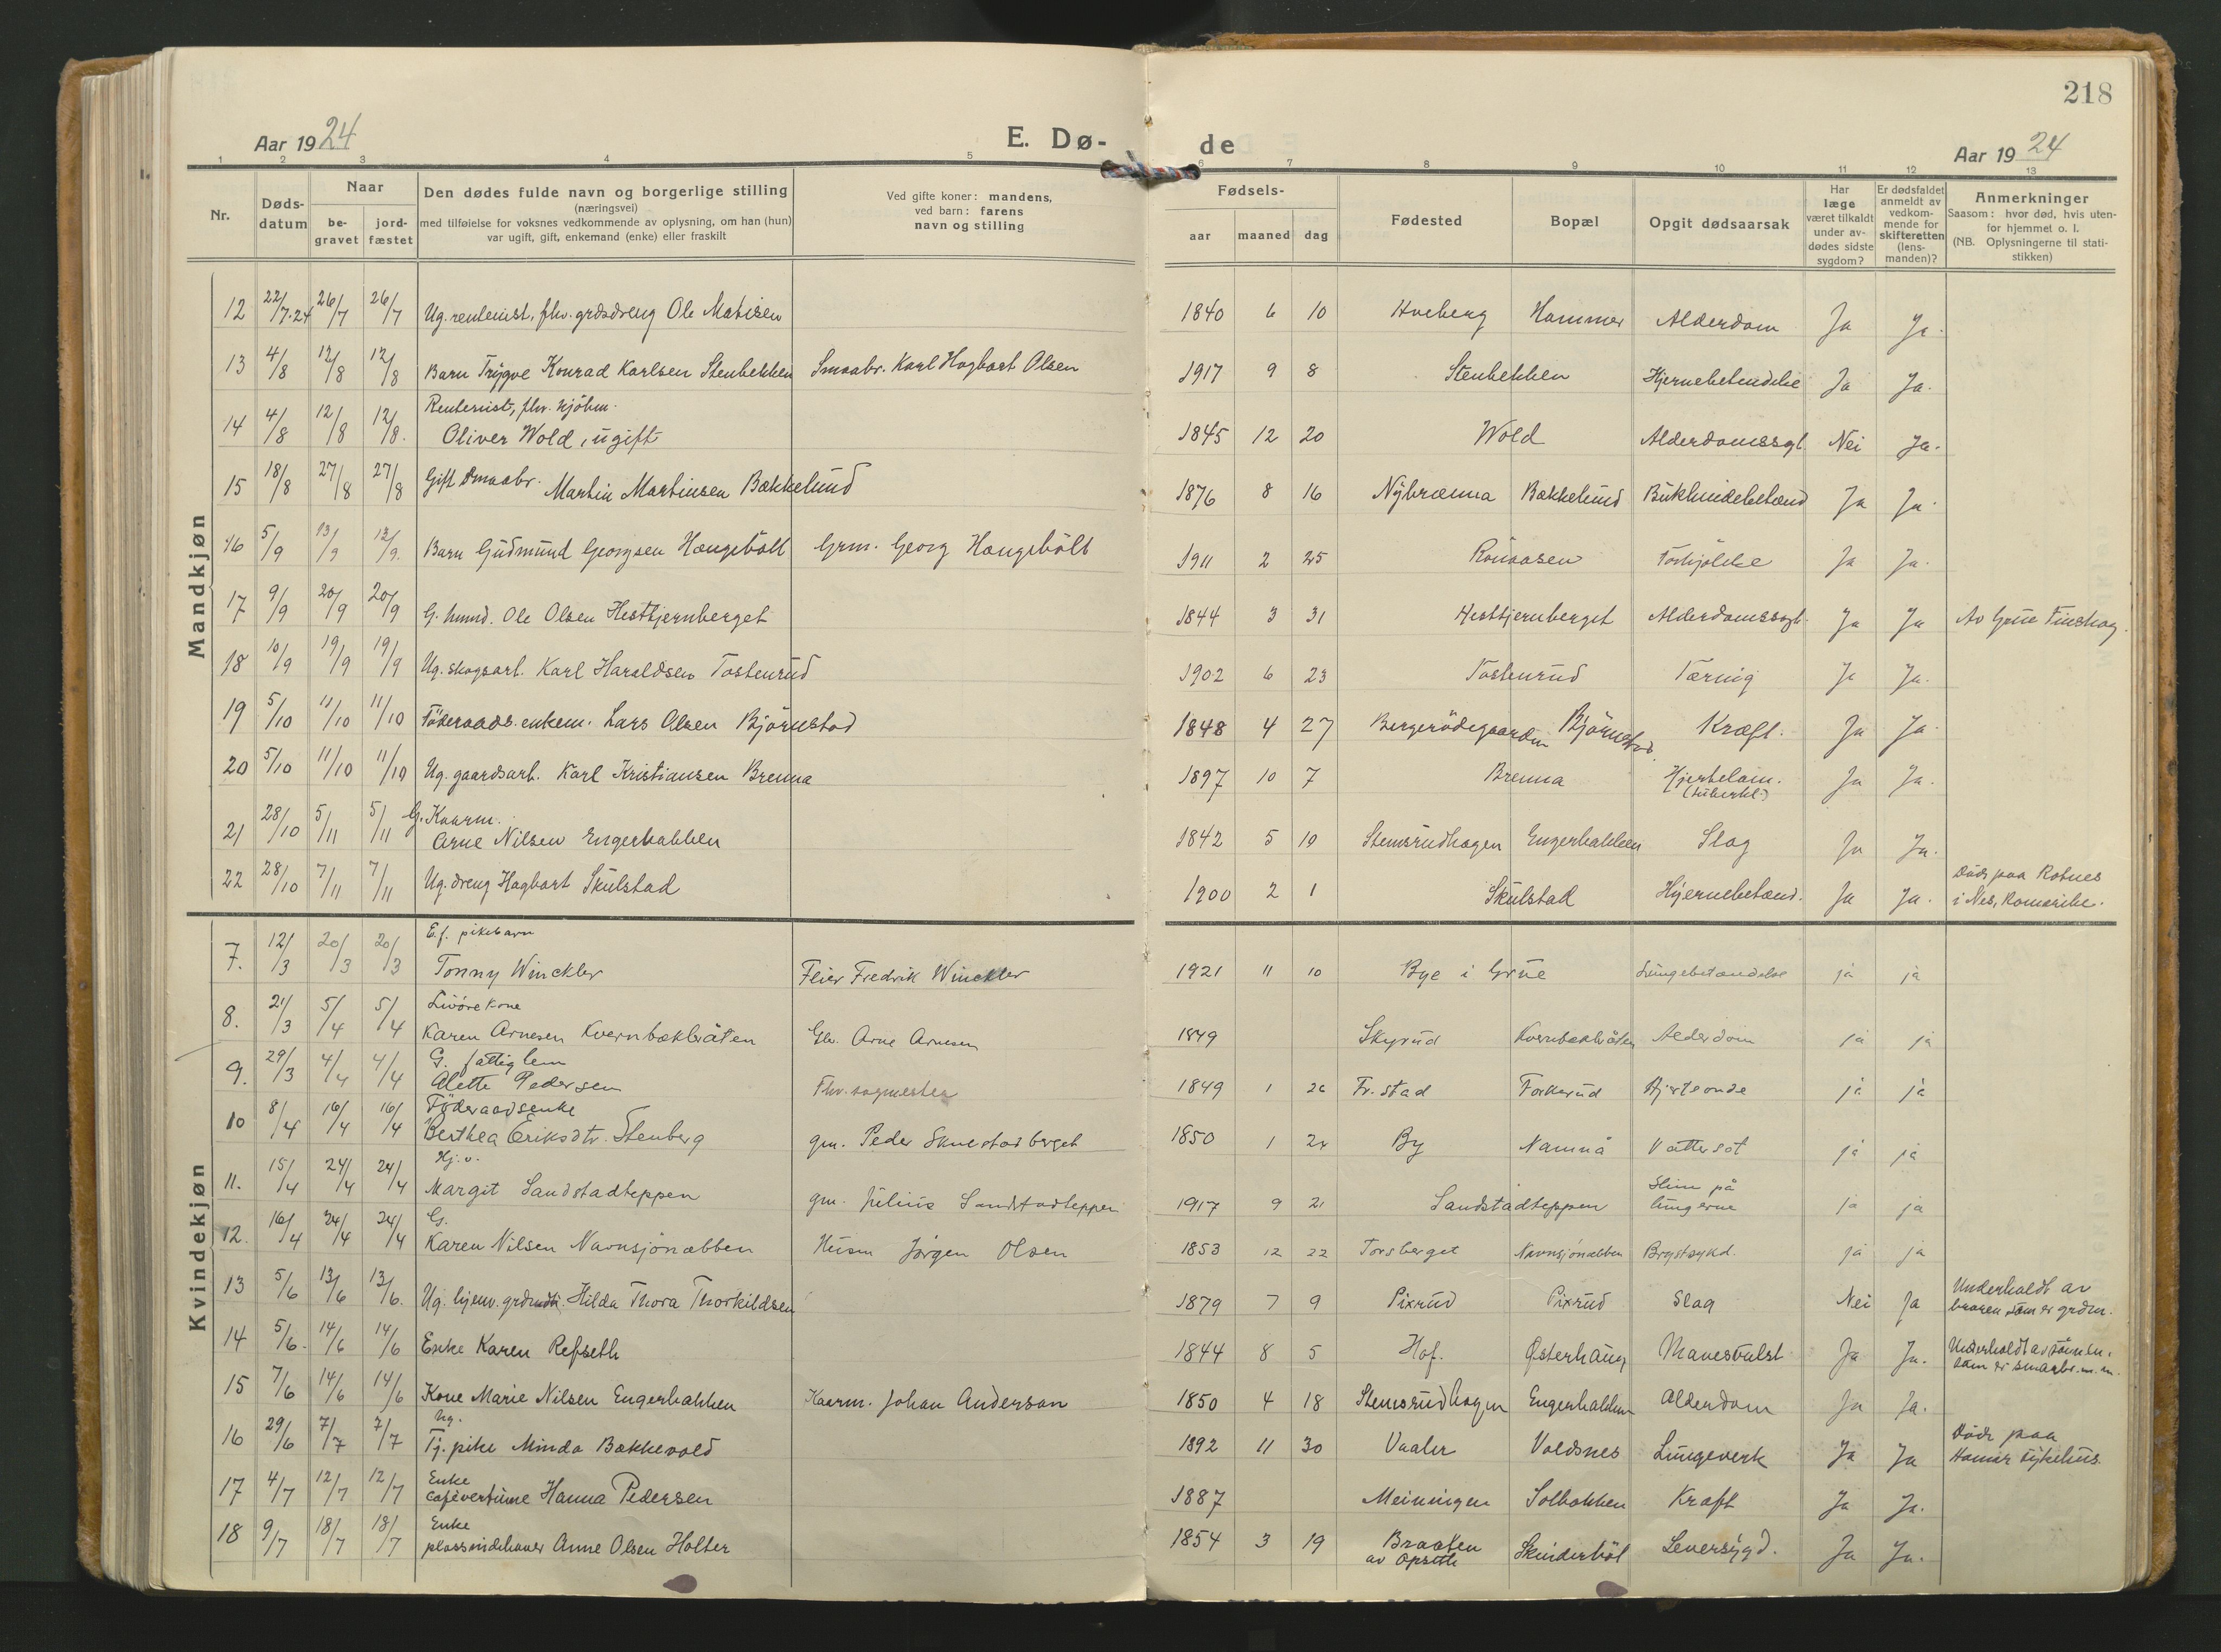 218
Aar 1924
E. Dø-
de
Aar 1924
1 2 3 4 5 6 7 8 9 10 11 12 13
Nr.
Døds-
datum
Naar
be-
gravet
jord-
fæstet
Den dødes fulde navn og borgerlige stilling
(næringsvei)
med tilføielse for voksnes vedkommende av oplysning, om han (hun)
var ugift, gift, enkemand (enke) eller fraskilt
Ved gifte koner: mandens,
ved barn: farens
navn og stilling
Fødsels-
aar maaned dag
Fødested
Bopæl
Opgit dødsaarsak
Har
læge
været tilkaldt
under av-
dødes sidste
sygdom?
Er dødsfaldet
anmeldt av
vedkom-
mende for
skifteretten
(lens-
manden)?
Anmerkninger
Saasom: hvor død, hvis uten-
for hjemmet o. l.
(NB. Oplysningerne til stati-
stikken)
Mandkjøn
12 22/7.24 26/7 26/7 Ug. rentenist, fhv. grdsdreng Ole Matisen 1840 6 10 Hveberg Hammer Alderdom Ja Ja.
13 4/8 12/8 12/8 Barn Trygve Konrad Karlsen Stenbekken Smaabr. Karl Hagbart Olsen 1917 9 8 Stenbekken Hjernebetendelse Ja Ja.
Rentenist, fhv. kjöbm.
14 4/8 12/8 12/8. Oliver Wold, ugift 1845 12 20 Wold Alderdomssygd. Nei Ja.
15 18/8 27/8 27/8 Gift Smaabr. Martin Martinsen Bækkelund 1876 8 16 Nybrænna Bækkelund Bukhindebetænd Ja Ja.
16 5/9 13/9 13/9. Barn Gudmund Georgsen Haugeholt Grm. Georg Haugeholt 1911 2 25 Rönaasen Ja Ja.
17 9/9 20/9 20/9 G. husmd. Ole Olsen Hesttjernberget 1844 3 31 Hesttjernberget Alderdomssygd. Ja Ja Av Grue Finskog.
18 10/9 19/9 19/9 Ug. skogsarb. Karl Haraldsen Tostenrud 1902 6 23 Tostenrud Tæring Ja Ja.
19 5/10 11/10 11/10 Föderaads.enkem. Lars Olsen Björnstad 1848 4 27 Bergerödegaarden Björnstad. Kræft. Ja Ja.
20 5/10 11/10 11/10 Ug. gaardsarb. Karl Kristiansen Brenna 1897 10 7 Brenna Hjertelam. Ja Ja.
(tuberkl.)
G. Kaarm.
21 28/10 5/11 5/11 Arne Nilsen Engerbakken 1842 5 10 Stemsrudhagen Engerbakken Slag Ja Ja.
22 28/10 7/11 7/11 Ug. dreng Hagbart Skulstad 1900 2 1 Skulstad Hjernebetænd. Ja Ja. Död paa Rotnes
i Nes, Romerike.
Kvindekjøn
E.f. pikebarn
7. 12/3 20/3 20/3 Tonny Winckler Feier Fredrik Winckler 1921 11 10 Bye i Grue Lungebetændelse ja ja
Livöre kone
8. 21/3 5/4 5/4 Karen Arnesen Kvernbækbråten Gbr. Arne Arnesen 1849 Skyrud Kvernbækbråten Alderdom ja ja
G. fattiglem
9. 29/3 4/4 4/4 Alette Pedersen Fhv. sagmester 1849 1 26 Fr.stad Forkerud Hjerteonde ja ja
Föderaadsenke
10 8/4 16/4 16/4 Berthea Eriksdtr. Stenberg gm. Peder Skulstadberget 1850 1 22 By Namnå Vattersot ja ja
Hj.v.
11. 15/4 24/4 24/4 Margit Sandstadteppen gm. Julius Sandstadteppen 1917 9 21 Sandstadteppen Slim på
lungerne ja ja
G.
12. 16/4 24/4 24/4 Karen Nilsen Navnsjönæbben Husm Jörgen Olsen 1853 12 22 Torsberget Navnsjönæbben Brystsykd. ja ja
13 5/6 13/6 13/6. Ug. hjemv. Hilda Thora Thorkildsen 1879 7 9 Pixrud Pixrud Slag Nei Ja Underholdt av
broren som er grdm.
14 5/6. 14/6 14/6 Enke Karen Refseth 1844 8 5 Hof. Østerhaug Mavesvulst Ja Ja. Underholdt av sönnen,
som er smaabr. m.m.
15 7/6 14/6 14/6 Kone Marie Nilsen Engerbakken Kaarm. Johan Anderson 1850 4 18 Stemsrudhagen Engerbakken Alderdom Ja Ja.
Ug.
16 29/6 7/7 7/7 Tj. pike Minda Bækkevold 1892 11 30 Vaaler Voldsnes Lungeverk Ja Ja Död paa
Hamar sykehus.
Enke
17 4/7 12/7 12/7 Cafévertinne Hanna Pedersen 1887 Meiningen Solbakken Kræft Ja Ja.
Enke
18 9/7 18/7 18/7 plassindehaver Anne Olsen Holter 1854 3 19 Braaten
av Opseth Skinderhöl Leversygd. Ja Ja.